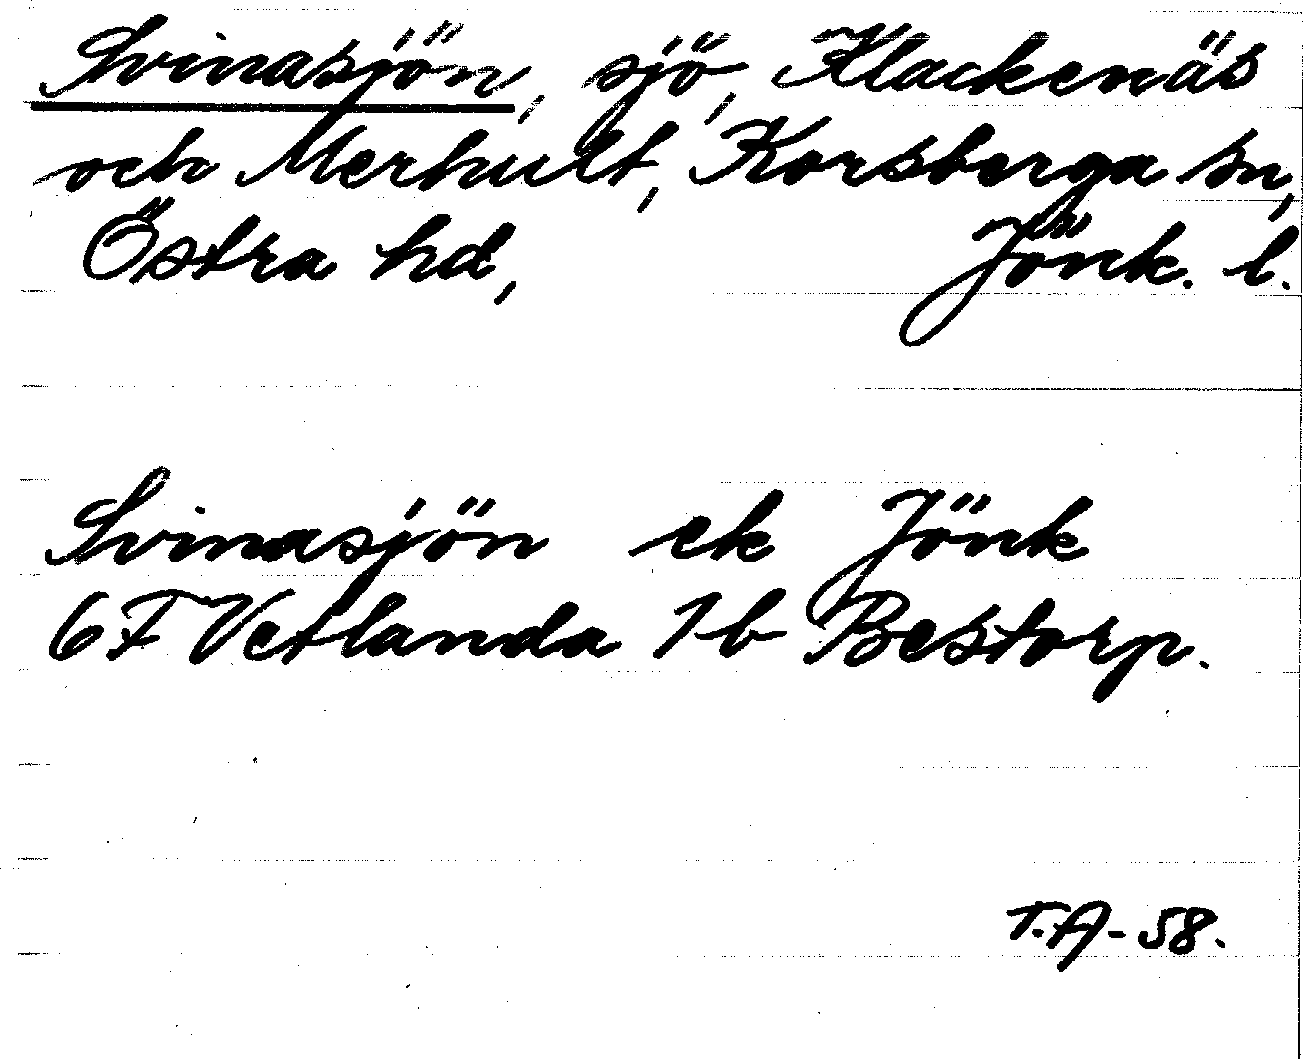 Svinasjön, sjö, Klackenäs
och Merhult, Korsberga sn,
Östra hd, Jönk. l.
Svinasjön ek Jönk
6F Vetlanda 7b Bestorp.
T.A-58.